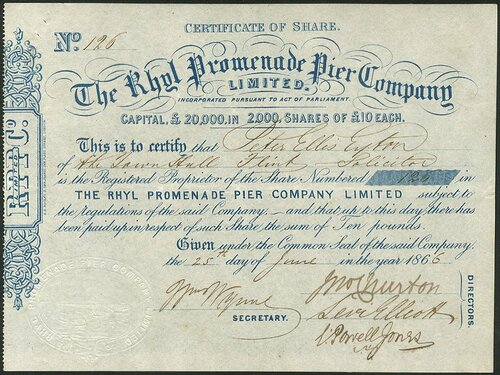 CERTIFICATE OF SHARE.
No. 126
The Rhyl Promenade Pier Company
LIMITED.
INCORPORATED PURSUANT TO ACT OF PARLIAMENT.
CAPITAL, £20,000, IN 2,000 SHARES OF £10 EACH.
This is to certify that Peter Ellis Eyton
of the Town Hall Flint Solicitor
is the Registered Proprietor of the Share Numbered 126 in
THE RHYL PROMENADE PIER COMPANY LIMITED subject to
the regulations of the said Company,—and that up to this day there has
been paid up in respect of such Share the sum of Ten pounds
Given under the Common Seal of the said Company,
the 25th day of June in the year 1866
Wm Wynne
SECRETARY.
Jno Churton
Levi Elliott
Powell Jones
DIRECTORS.
R.P.P.Co.